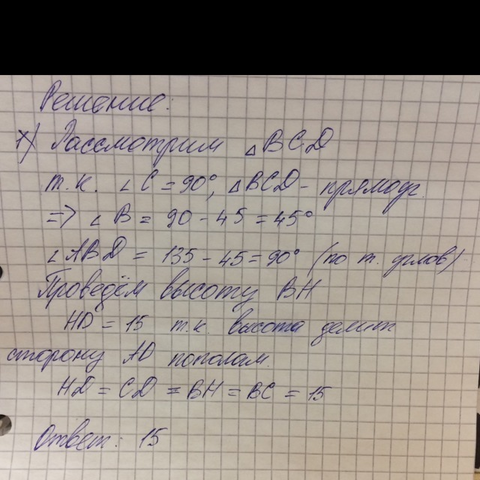 Решение:
1) Рассмотрим △ BCD
т.к. ∠ C = 90°, △ BCD - прямоуг
=> ∠ B = 90 - 45 = 45°
∠ ABD = 135 - 45 = 90° (по т. углов)
Проведём высоту BH
HD = 15 т.к высота делит
сторону AD пополам
HD = CD = BH = BC = 15
Ответ: 15